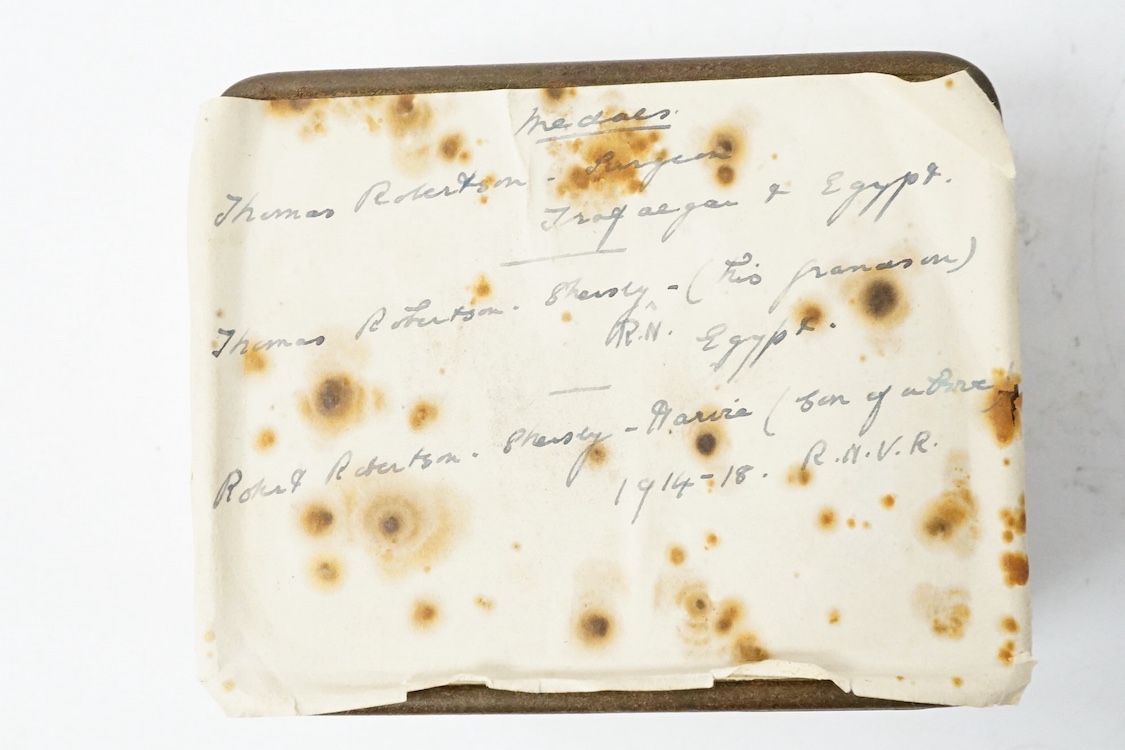 Medals.
Thomas Robertson - Surgeon
Trafalgar & Egypt.
Thomas Robertson. Shersly - (his grandson)
R.N. Egypt.
Robert Robertson. Shersly - Harvie (Son of above)
1914-18. R.N.V.R.